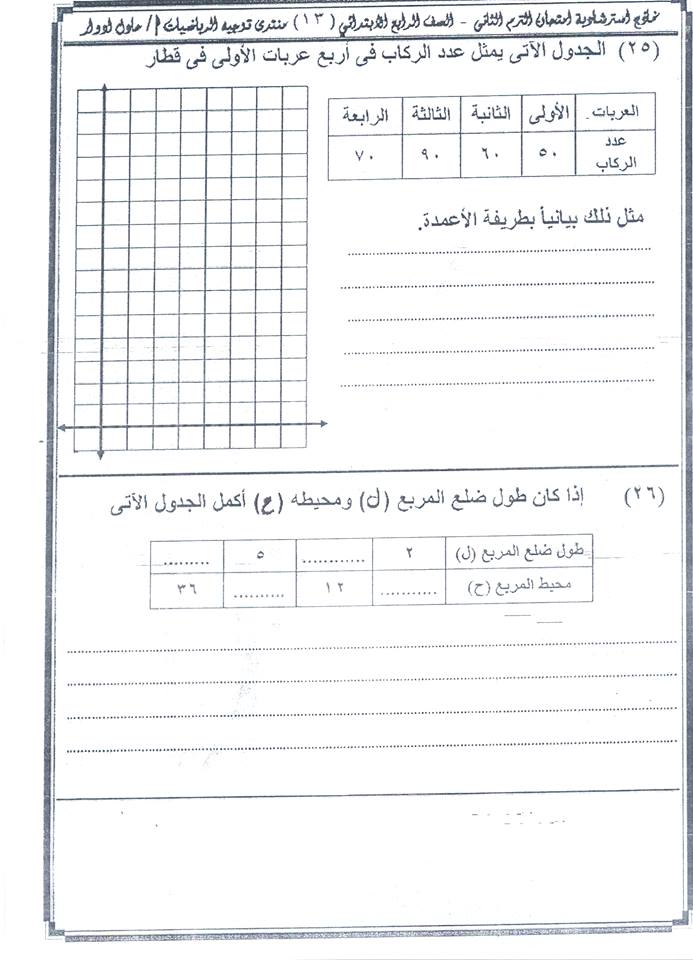 نماذج استرشادية امتحان الترم الثانى - الصف الرابع الابتدائي (١٣) منتدى توجيه الرياضيات أ/ عادل ادوار
(٢٥) الجدول الآتى يمثل عدد الركاب فى أربع عربات الأولى فى قطار
العربات الأولى الثانية الثالثة الرابعة
عدد الركاب ٥٠ ٦٠ ٩٠ ٧٠
مثل ذلك بيانياً بطريقة الأعمدة.
(٢٦) إذا كان طول ضلع المربع (ل) ومحيطه (ح) أكمل الجدول الآتى
طول ضلع المربع (ل) ٢ ............ ٥ .........
محيط المربع (ح) ........... ١٢ .......... ٣٦